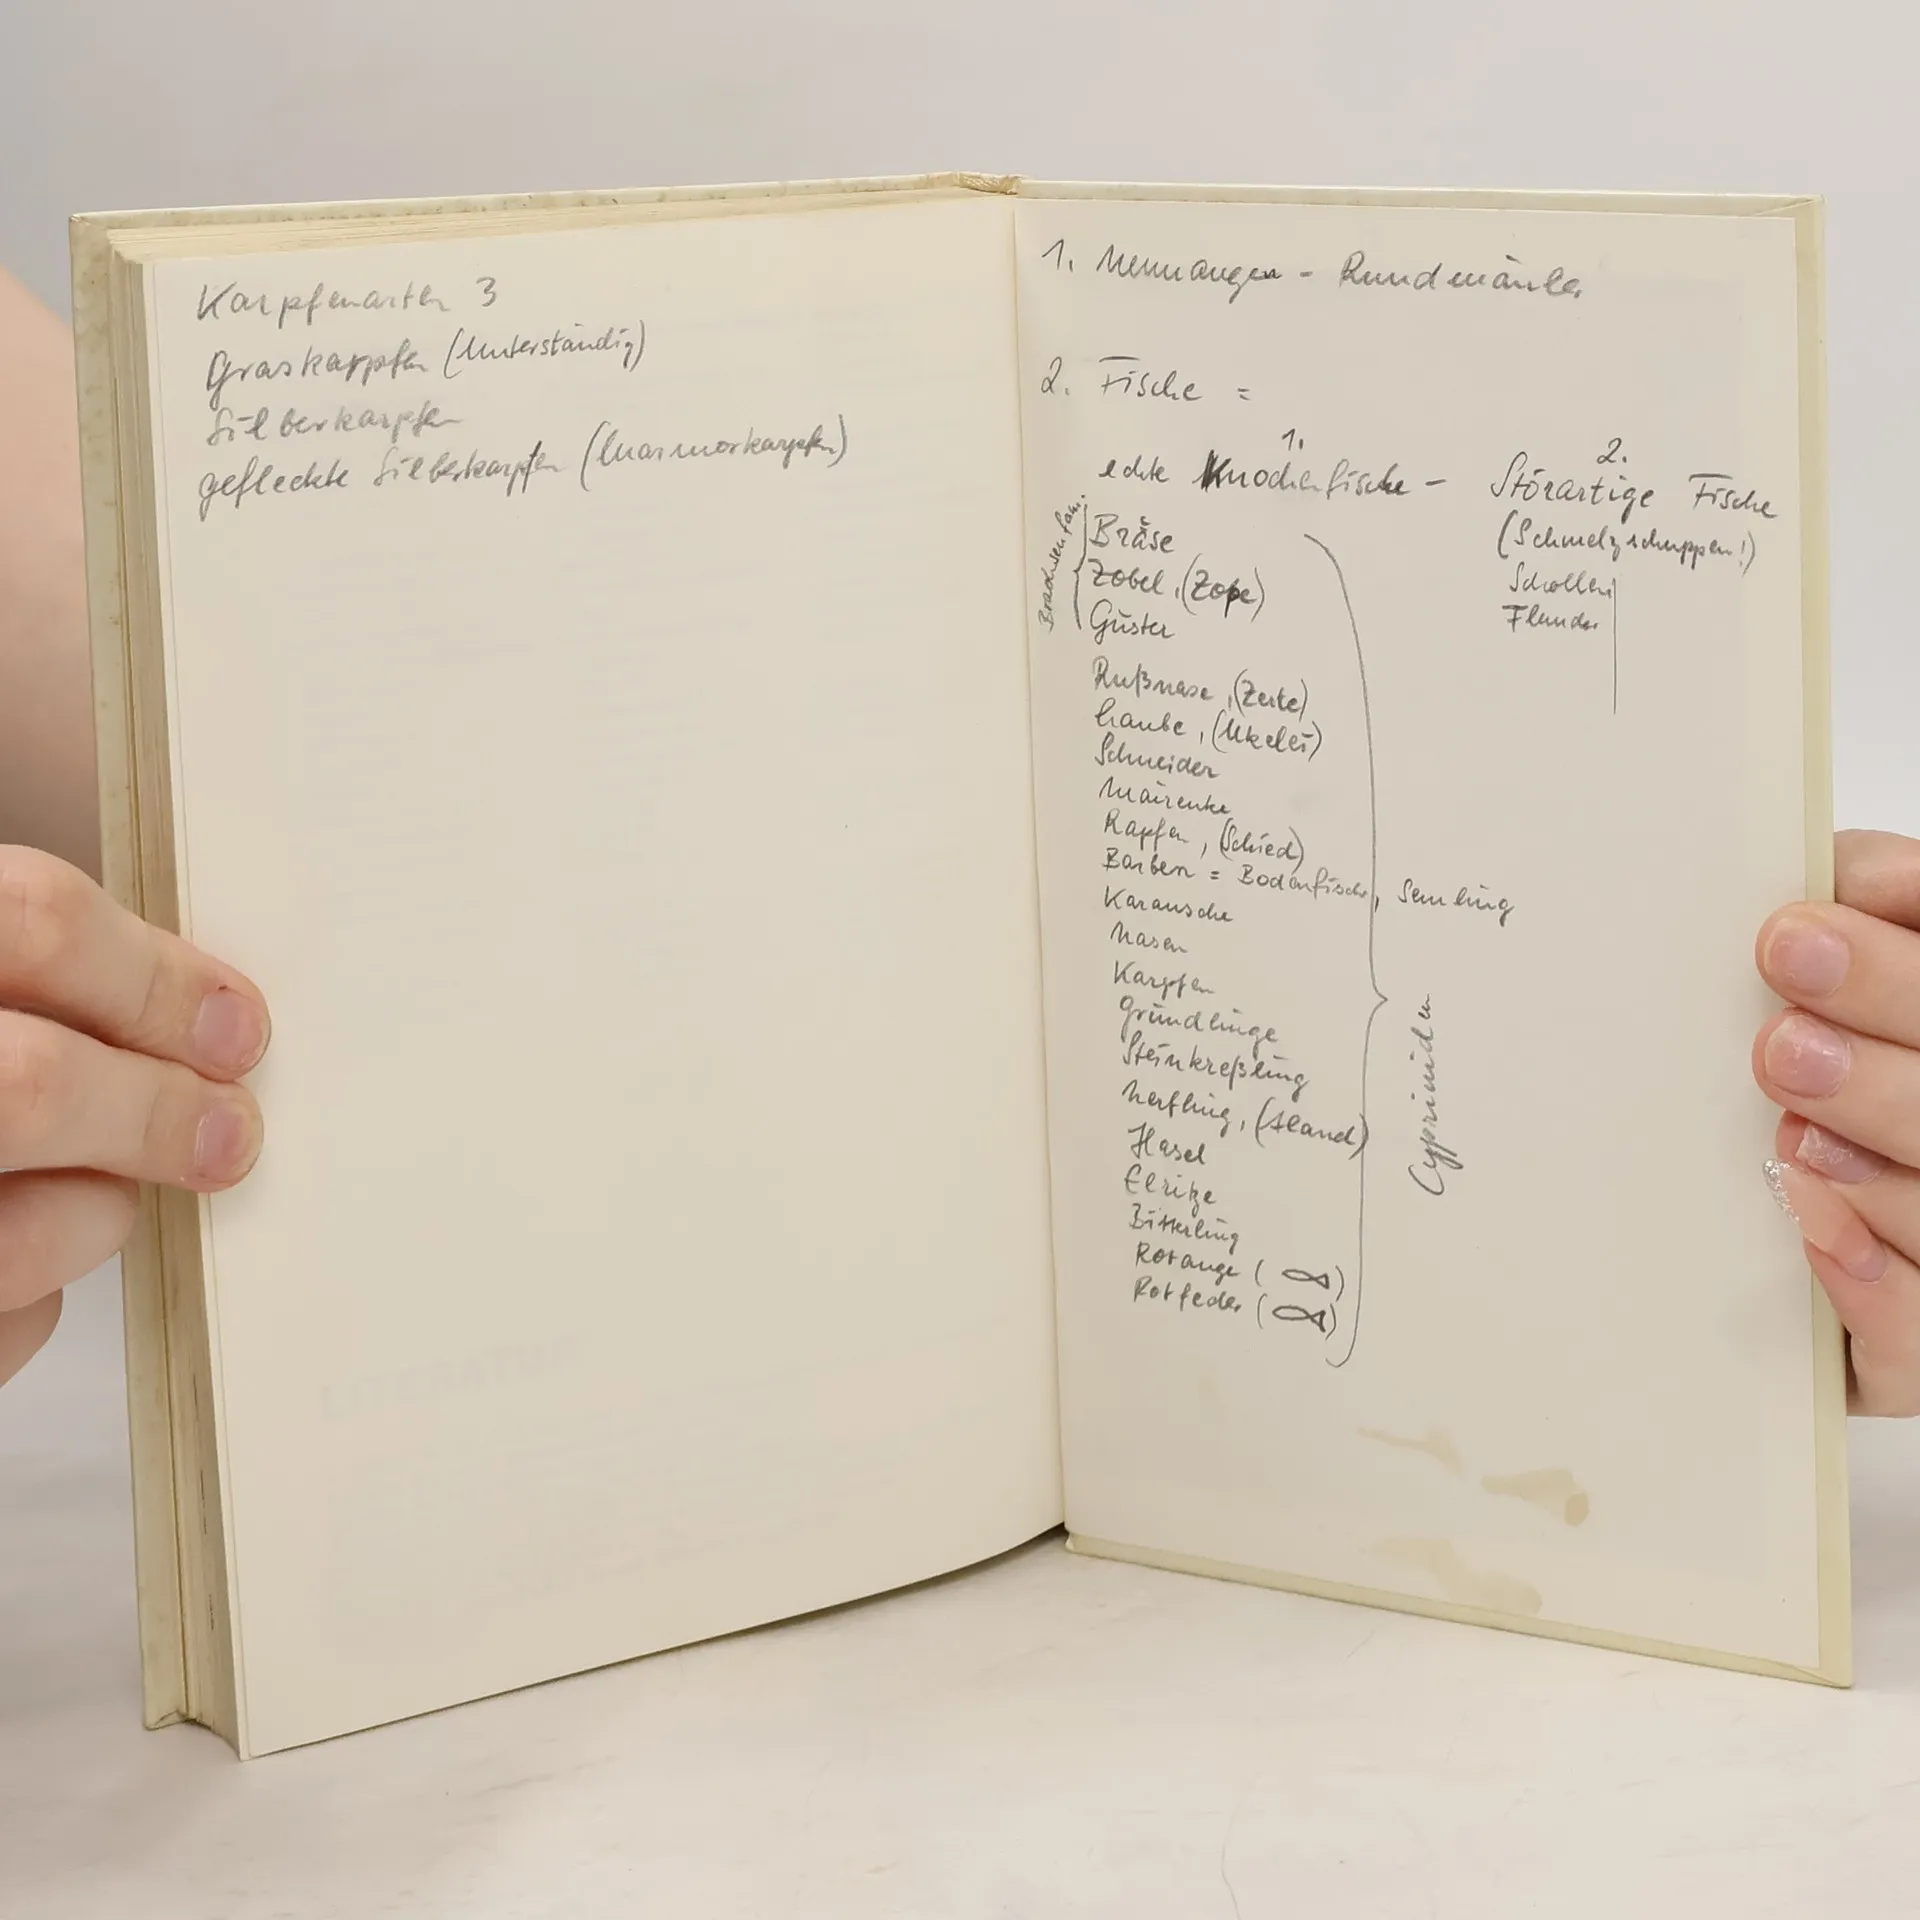 Karpfenarten 3
Graskarpfen (Unterständig)
Silberkarpfen
gefleckte Silberkarpfen (Marmorkarpfen)
1. Neunaugen - Rundmäuler
2. Fische =
1. 2.
echte Knochenfische - Störartige Fische
(Schmelzschuppen!)
Schollen
Flunder
Brachsenfam.
Bräse
Zobel, (Zope)
Güster
Rußnase, (Zerte)
Laube, (Ukelei)
Schneider
Mairenke
Rapfen, (Schied)
Barben = Bodenfische, Semling
Karausche
Nasen
Karpfen
Gründlinge
Steinkreßling
Nerfling, (Aland)
Hasel
Elritze
Bitterling
Rotauge ( )
Rotfeder ( )
Cypriniden